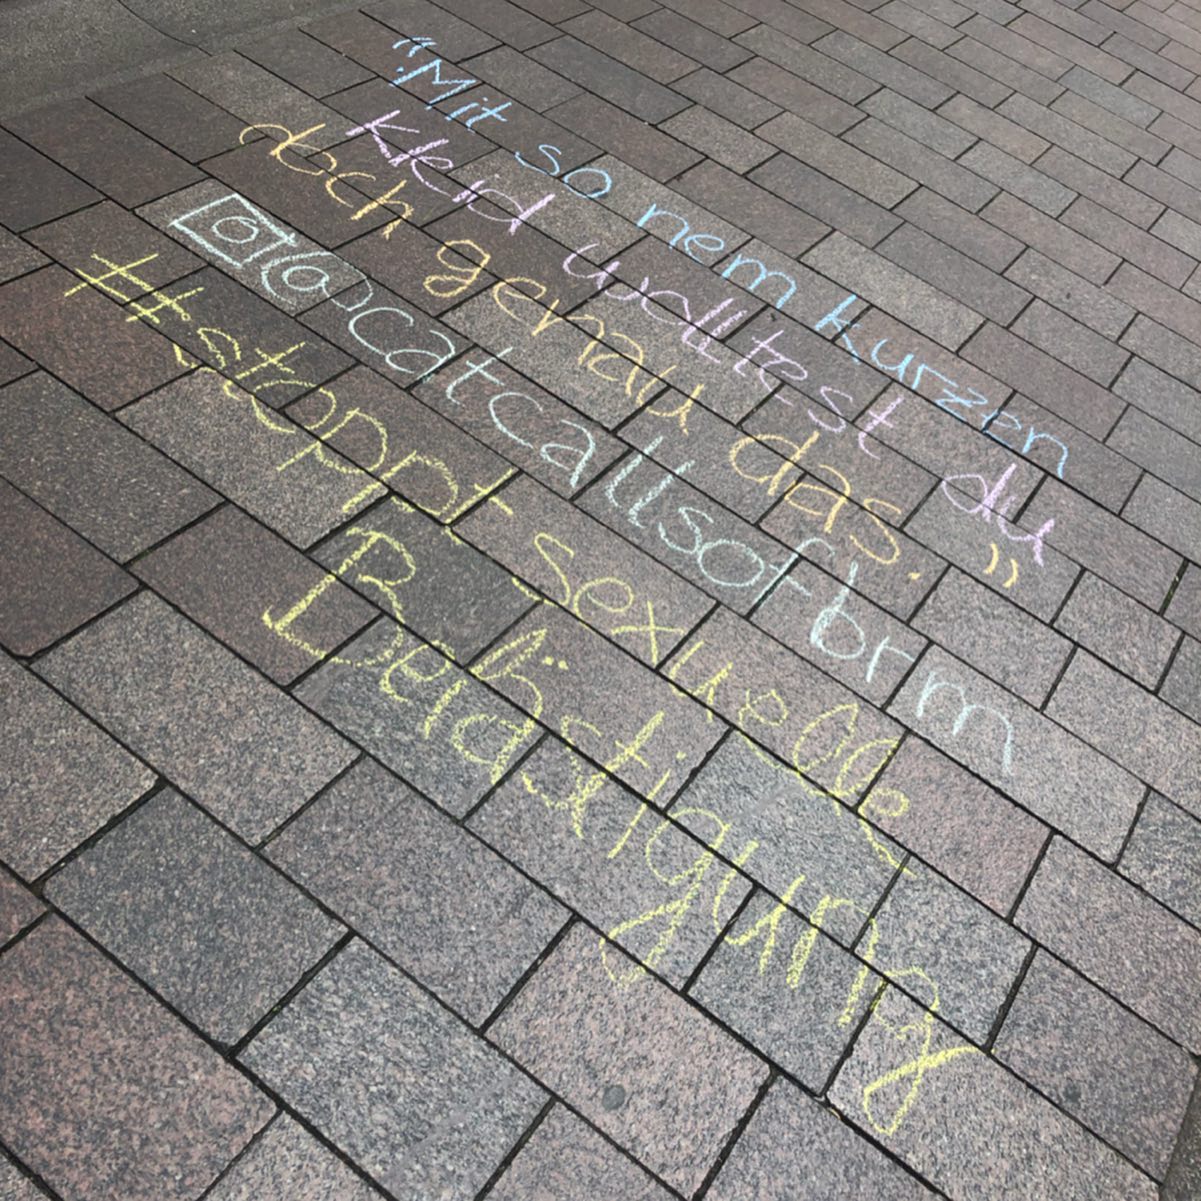 "Mit so nem kurzen
Kleid wolltest du
doch genau das."
@catcallsofbrm
#stoppt sexuelle
Belästigung